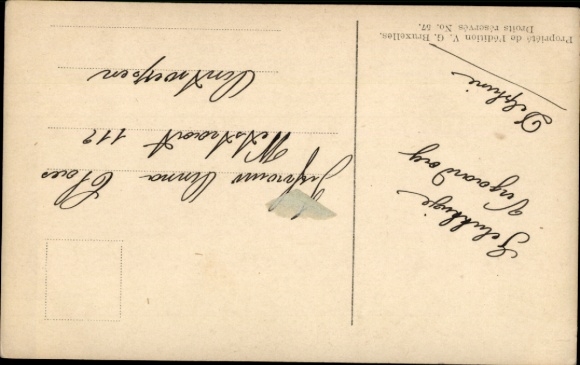 Propriété de l'édition V. G. Bruxelles.
Droits réservés No. 57.
Gelukkige
Verjaardag
Delphine
Jufvrouw Anna Claes
Wetstraat 112
Antwerpen